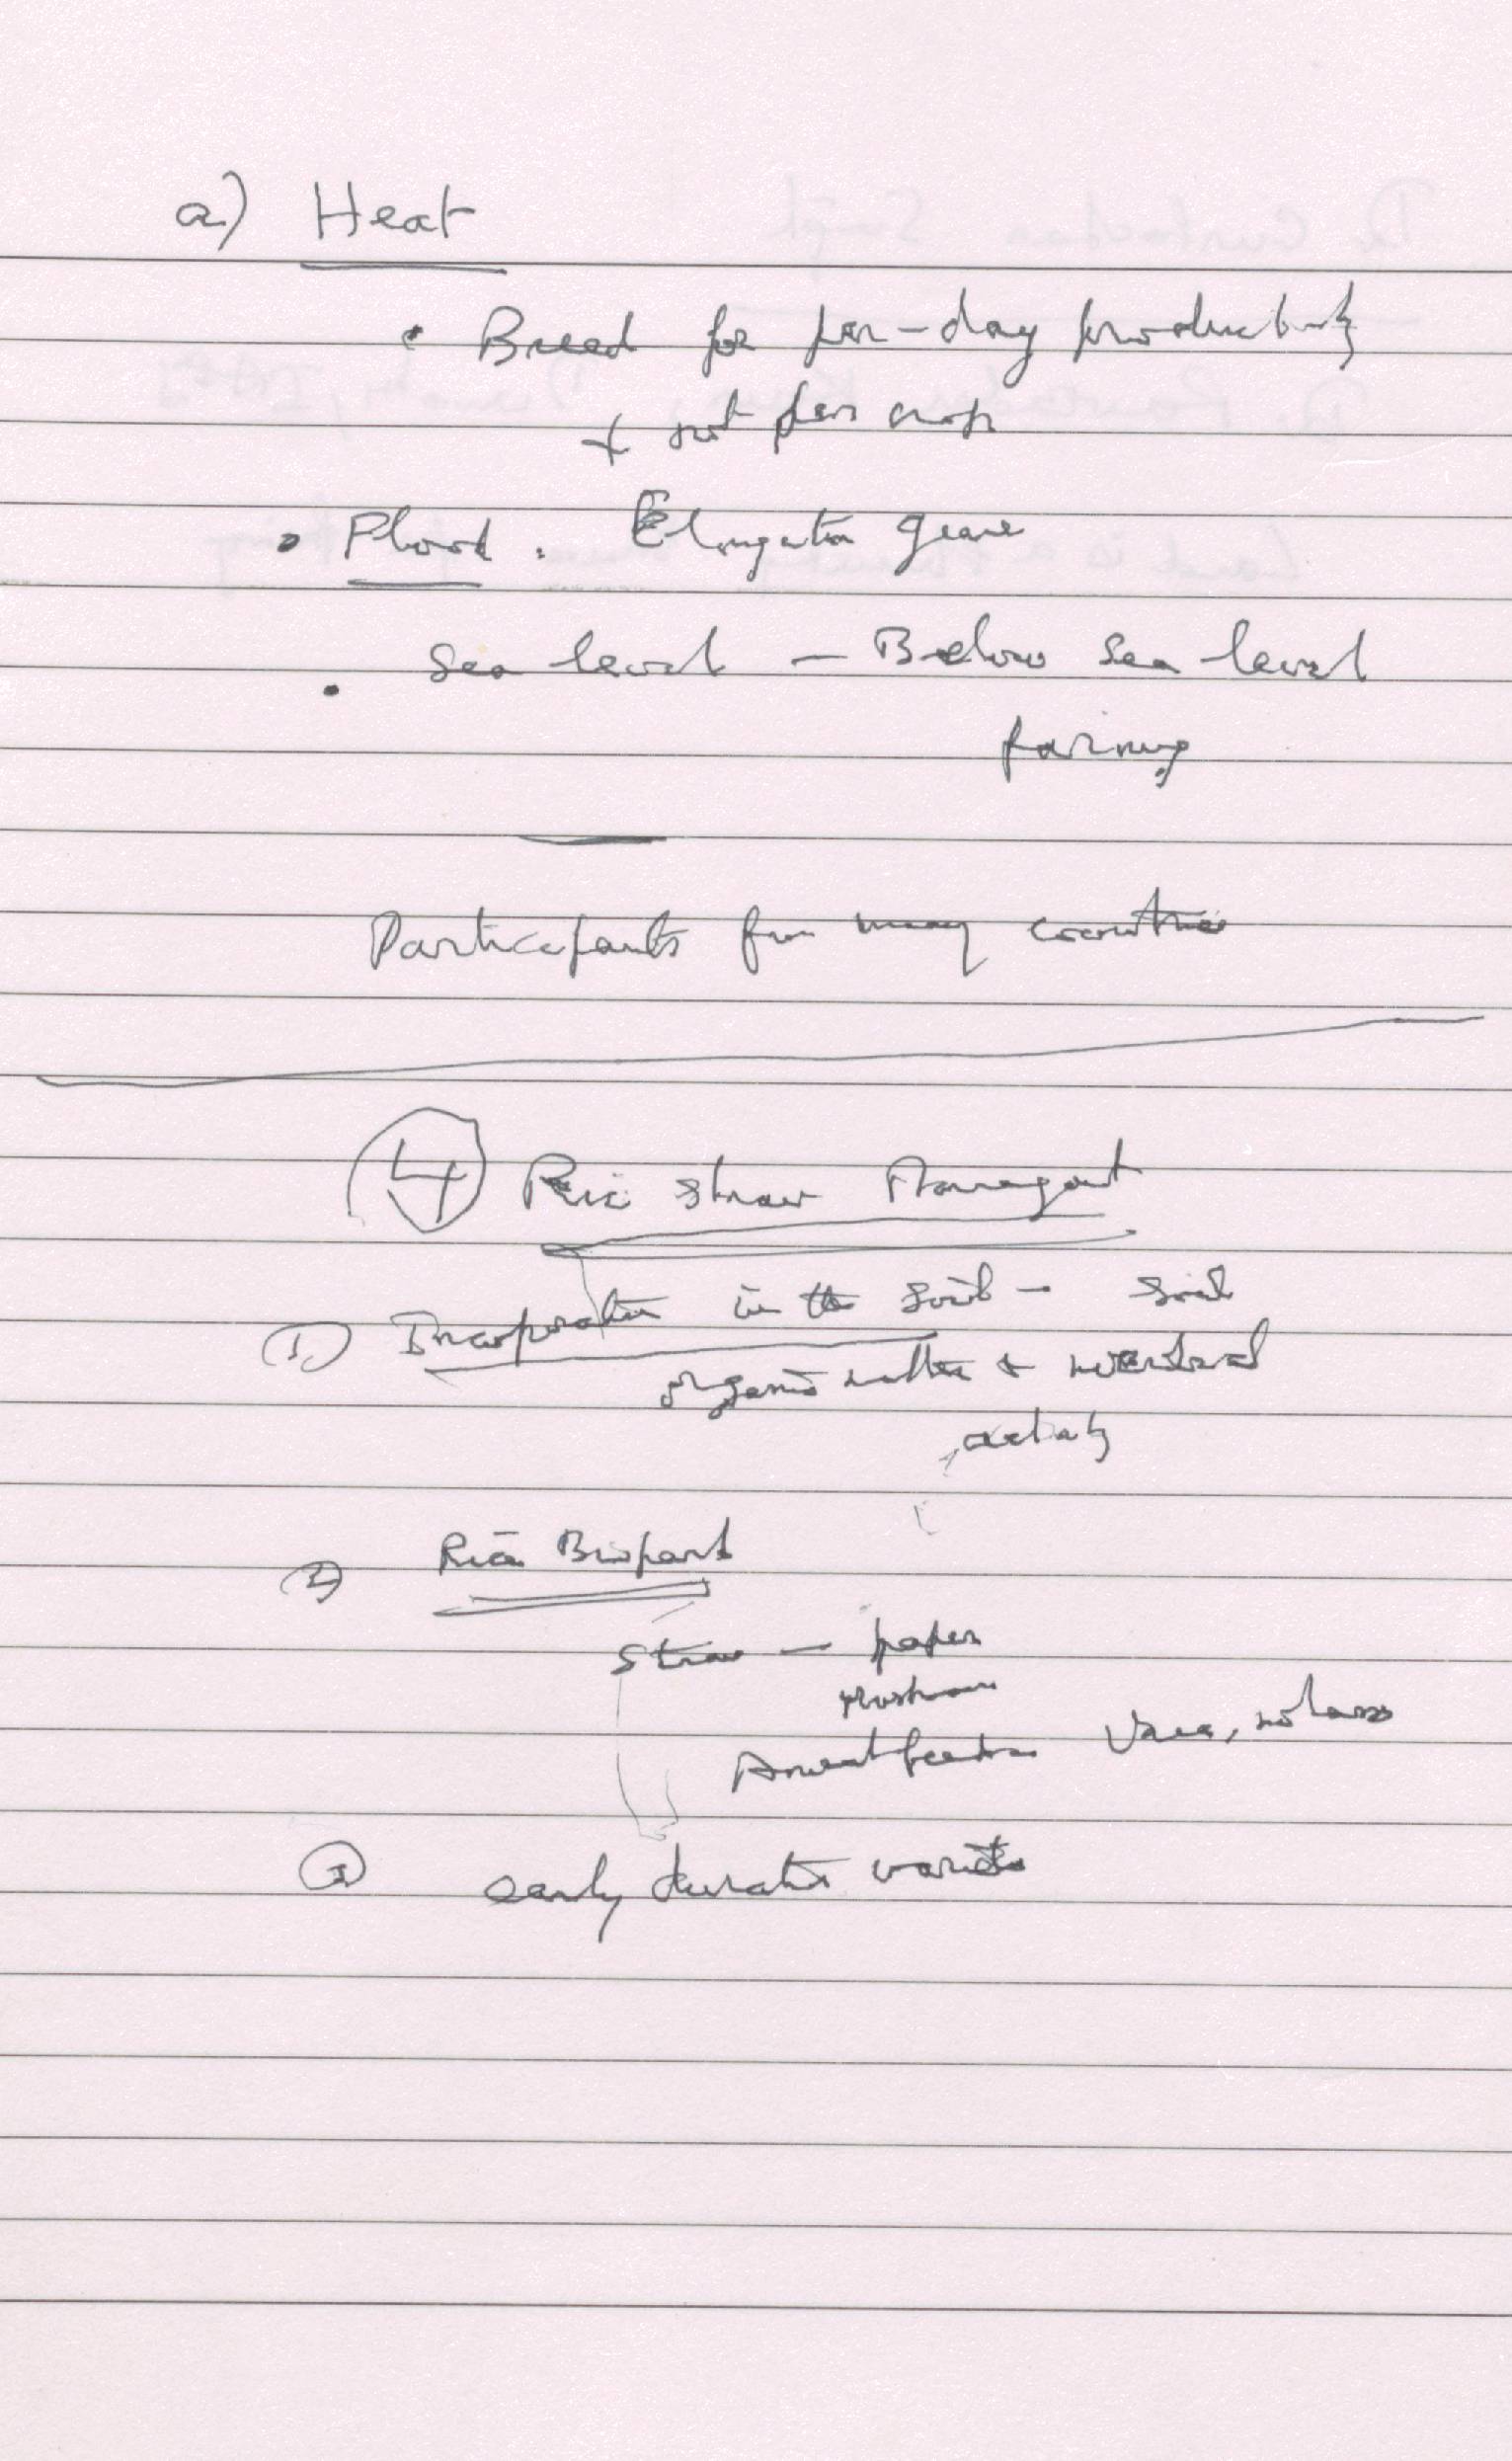 a) Heat
• Breed for per-day productivity
+ not per crop
• Flood. Elongation gene
• Sea level - Below sea level
farming
Participants from many countries
4 Rice Straw Management
1) Incorporation in the soil - soil
organic matter + microbial
activity
2) Rice Biopark
Straw - paper
Mushroom
Animal feed Urea, molasses
3 early duration varieties